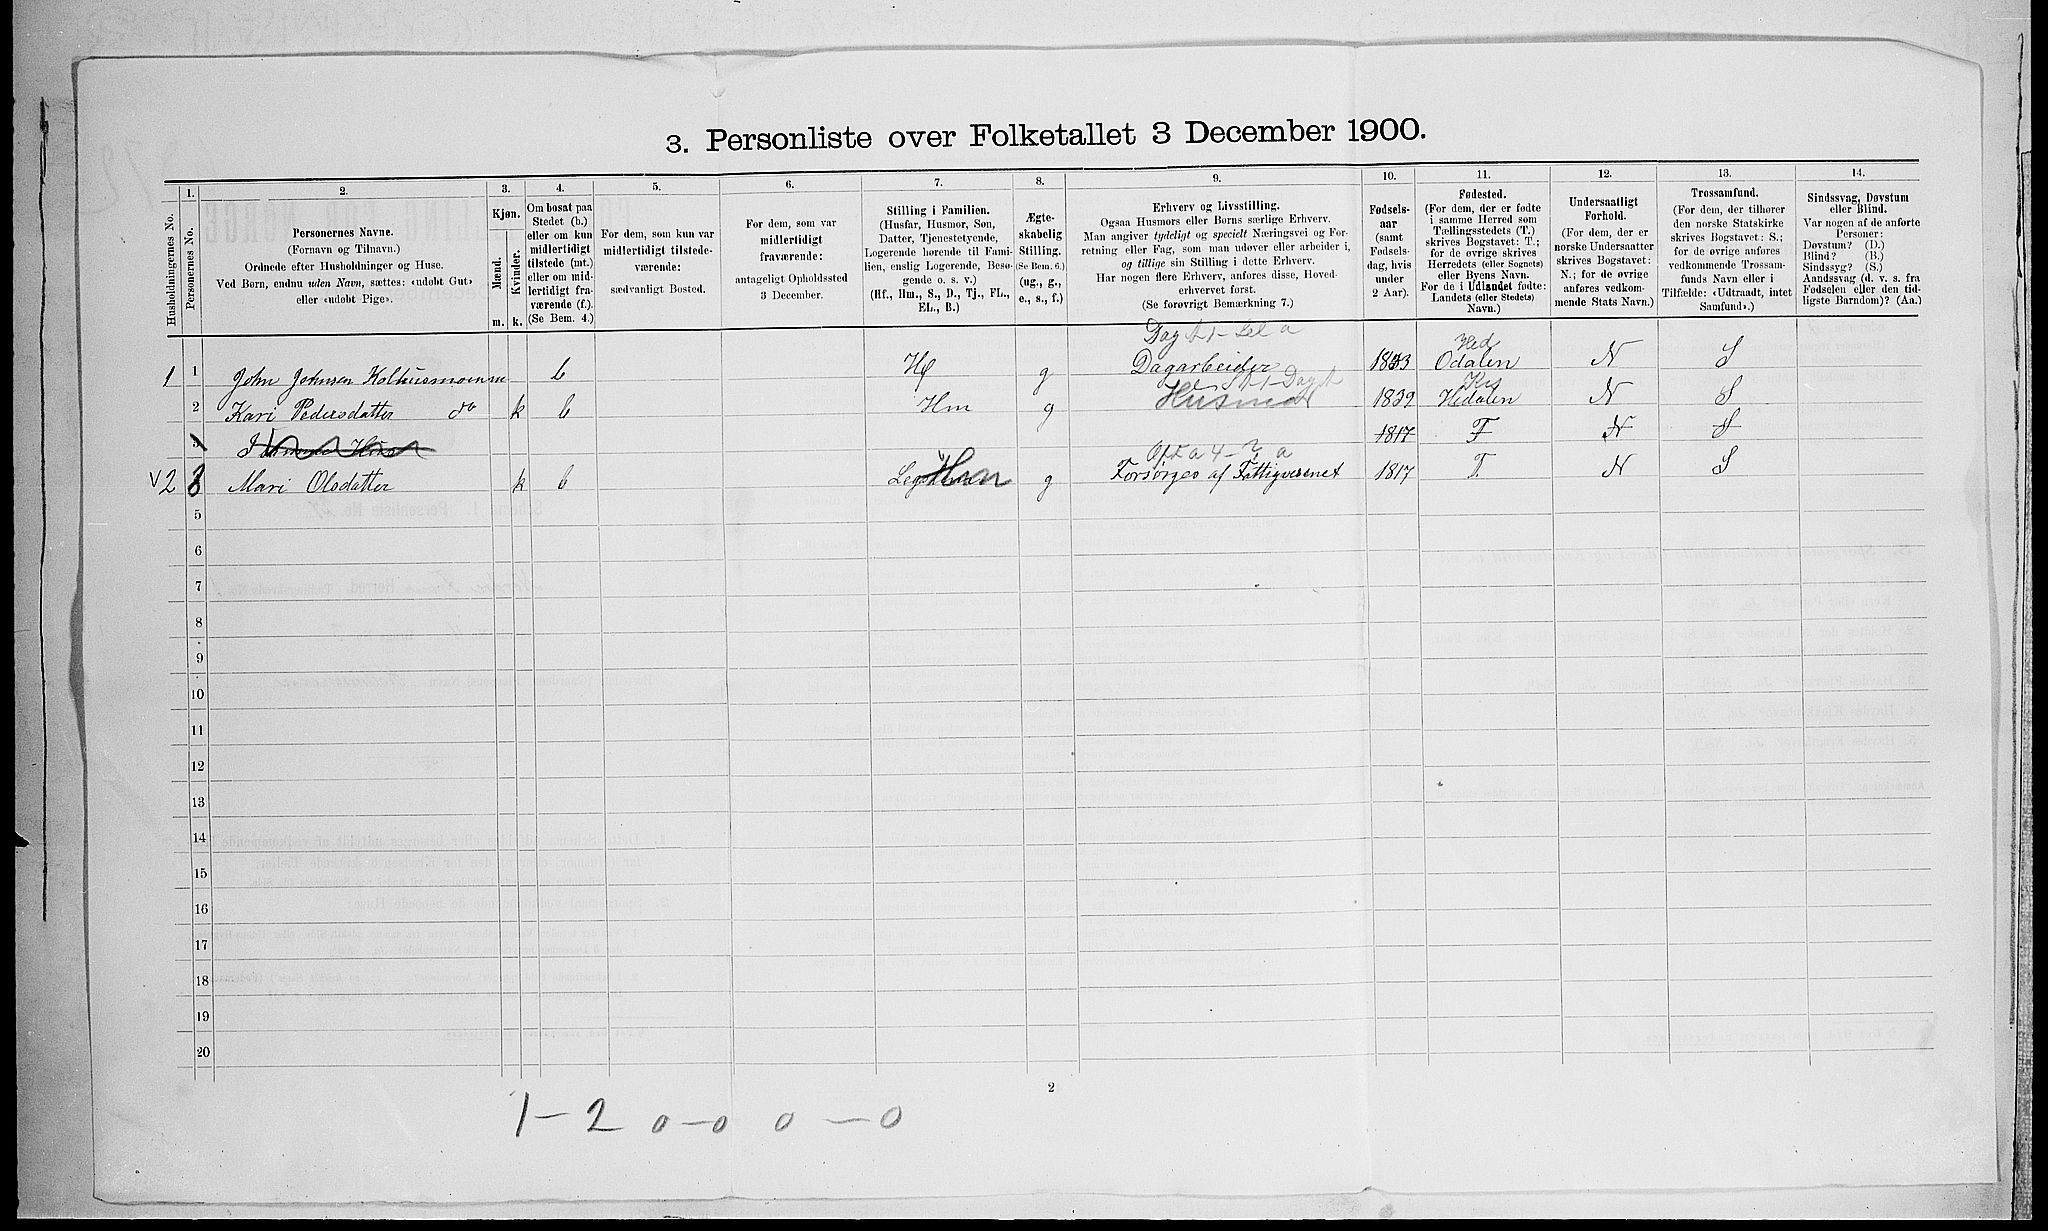 3. Personliste over Folketallet 3 December 1900.
Husholdningernes No.
1.
Personernes No.
2.
Personernes Navne.
(Fornavn og Tilnavn.)
Ordnede efter Husholdninger og Huse.
Ved Børn, endnu uden Navn, sættes: «udøbt Gut»
eller «udøbt Pige».
3.
Kjøn.
Mænd.
Kvinder.
m. k.
4.
Om bosat paa
Stedet (b.)
eller om kun
midlertidigt
tilstede (mt.)
eller om mid-
lertidigt fra-
værende (f.).
(Se Bem. 4.)
5.
For dem, som kun var
midlertidigt tilstede-
værende:
sædvanligt Bosted.
6.
For dem, som var
midlertidigt
fraværende:
antageligt Opholdssted
3 December.
7.
Stilling i Familien.
(Husfar, Husmor, Søn,
Datter, Tjenestetyende,
Logerende hørende til Fami-
lien, enslig Logerende, Besø-
gende o. s. v.)
(Hf., Hm., S., D., Tj., FL.,
EL., B.)
8.
Ægte-
skabelig
Stilling.
(Se Bem. 6.)
(ug., g.,
e., s., f.)
9.
Erhverv og Livsstilling.
Ogsaa Husmors eller Børns særlige Erhverv.
Man angiver tydeligt og specielt Næringsvei og For-
retning eller Fag, som man udøver eller arbeider i,
og tillige sin Stilling i dette Erhverv.
Har nogen flere Erhverv, anføres disse, Hoved-
erhvervet først.
(Se forøvrigt Bemærkning 7.)
10.
Fødsels-
aar
(samt
Fødsels-
dag, hvis
under
2 Aar).
11.
Fødested.
(For dem, der er fødte
i samme Herred som
Tællingsstedets (T.)
skrives Bogstavet: T.;
for de øvrige skrives
Herredets (eller Sognets)
eller Byens Navn.
For de i Udlandet fødte:
Landets (eller Stedets)
Navn.)
12.
Undersaatligt
Forhold.
(For dem, der er
norske Undersaatter
skrives Bogstavet:
N.; for de øvrige
anføres vedkom-
mende Stats Navn.)
13.
Trossamfund.
(For dem, der tilhører
den norske Statskirke
skrives Bogstavet: S.;
for de øvrige anføres
vedkommende Trossam-
funds Navn eller i
Tilfælde: «Udtraadt, intet
Samfund».)
14.
Sindssvag, Døvstum
eller Blind.
Var nogen af de anførte
Personer:
Døvstum? (D.)
Blind? (B.)
Sindssyg? (S.)
Aandssvag (d. v. s. fra
Fødselen eller den tid-
ligste Barndom)? (Aa.)
1 1 John Johnsen Kolhusmoen b Hf g Dagarbeider Odalen N S
2 Kari Pedersdatter do k b Hm g Husmor 1839 Hedalen N S
3 1817 T N S
2 3 Mari Olsdatter k b g Forsørges af Fattigvesenet 1817 T N S
5
6
7
8
9
10
11
12
13
14
15
16
17
18
19
20
2
1 – 2 0 – 0 0 – 0